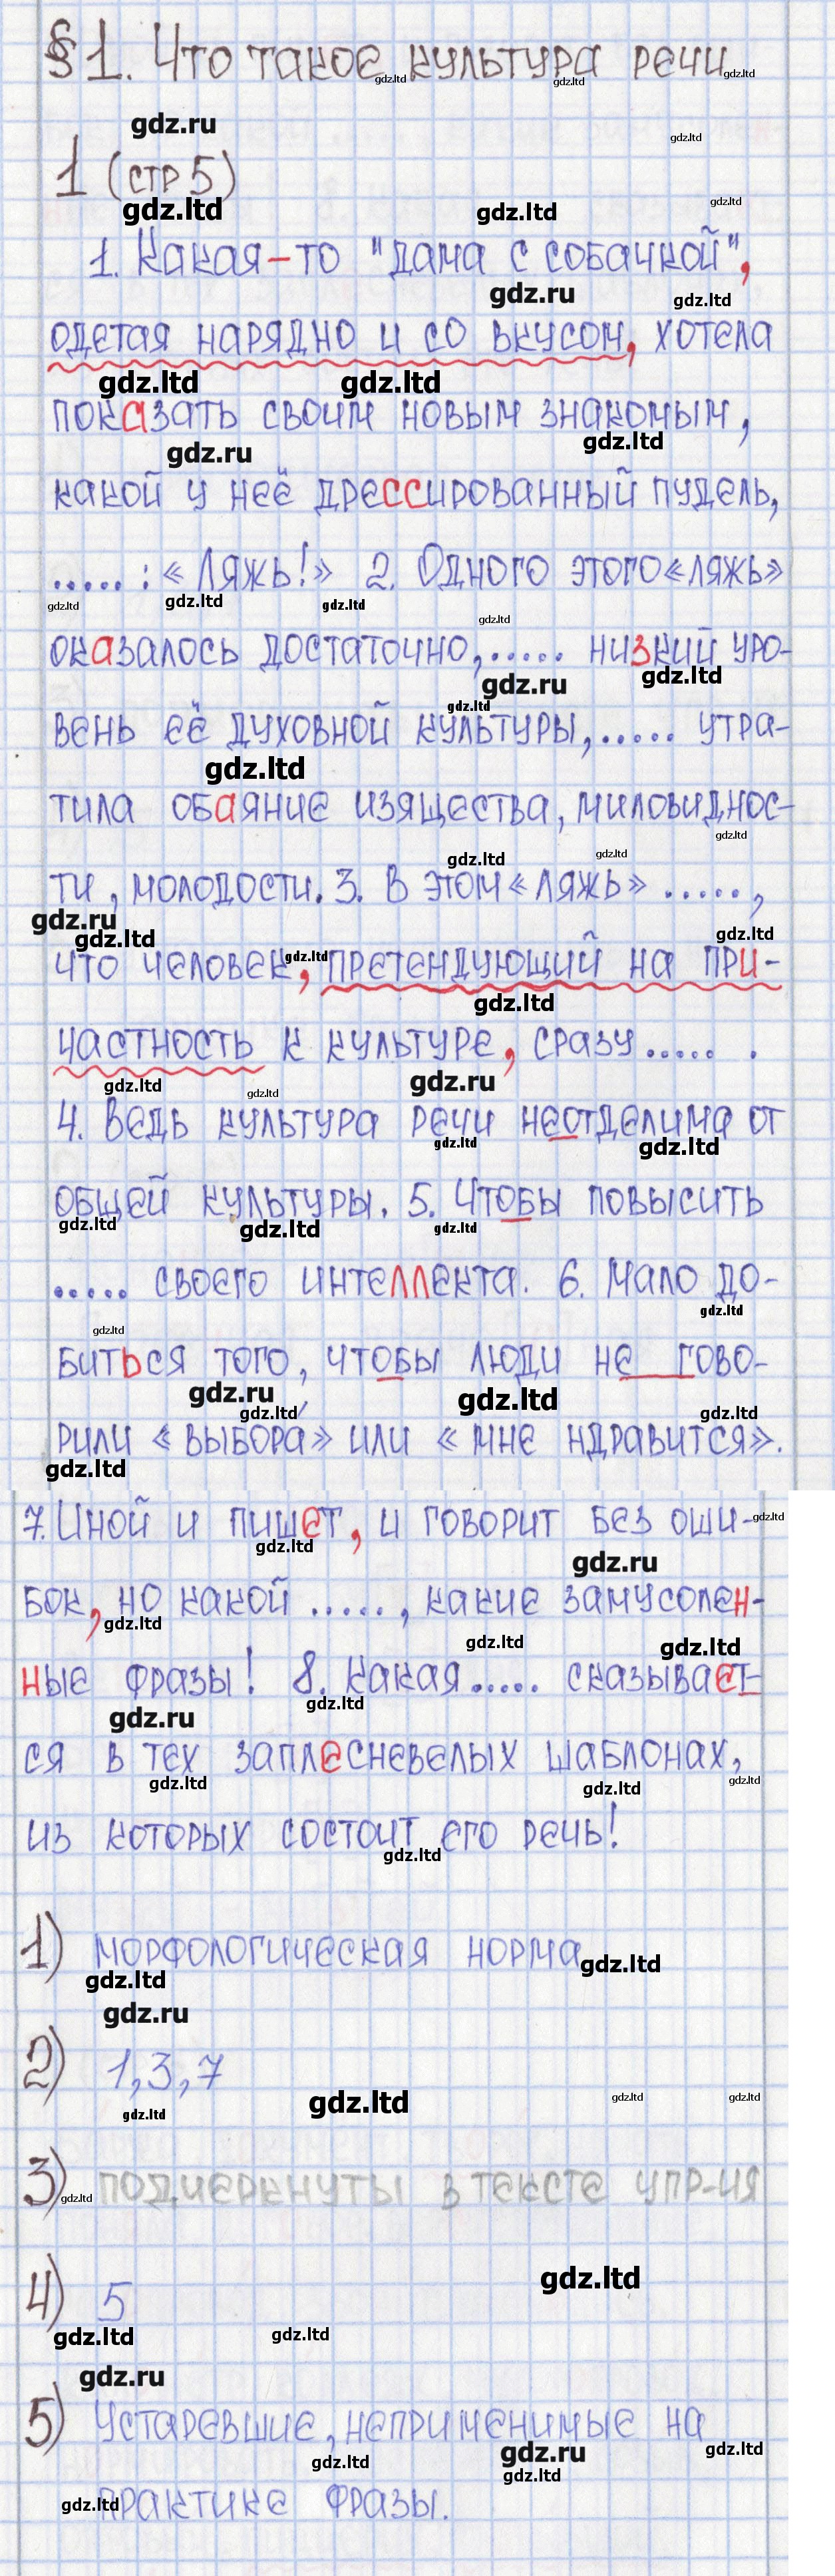 § 1. Что такое культура речи
1 (стр 5)
1. Какая-то "дама с собачкой",
одетая нарядно и со вкусом, хотела
показать своим новым знакомым,
какой у неё дрессированный пудель,
.....: «Ляжь!» 2. Одного этого «ляжь»
оказалось достаточно,..... низкий уро-
вень её духовной культуры,..... утра-
тила обаяние изящества, миловиднос-
ти, молодости. 3. В этом «ляжь» .....,
что человек, претендующий на при-
частность к культуре, сразу ..... .
4. Ведь культура речи неотделима от
общей культуры. 5. Чтобы повысить
..... своего интеллекта. 6. Мало до-
биться того, чтобы люди не гово-
рили «выбора́» или «мне ндравится».
7. Иной и пишет, и говорит без оши-
бок, но какой ....., какие замусолен-
ные фразы! 8. Какая..... сказывает-
ся в тех заплесневелых шаблонах,
из которых состоит его речь!
1) морфологическая норма
2) 1,3,7
3) подчеркнуты в тексте упр-ия
4) 5
5) Устаревшие, неприменимые на
практике фразы.